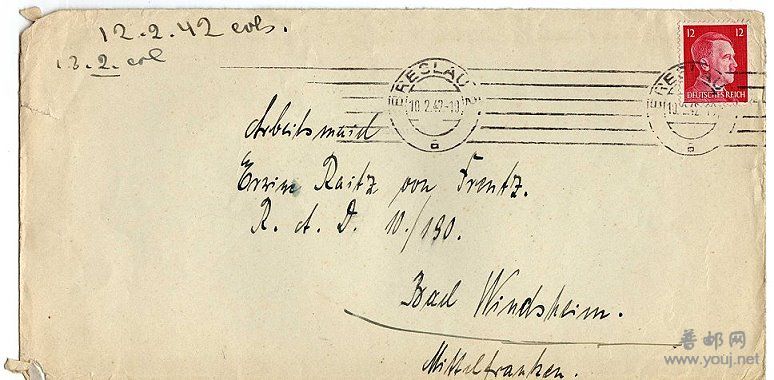 12.2.42 erl.
13.2. erl
12 12
DEUTSCHES REICH
BRESLAU
10.2.42-19
BRESLAU
Arbeitsmaid
Raitz von Frentz.
R. A. D. 10/130.
Bad Windsheim.
Mittelfranken.
普邮网
www.youj.net